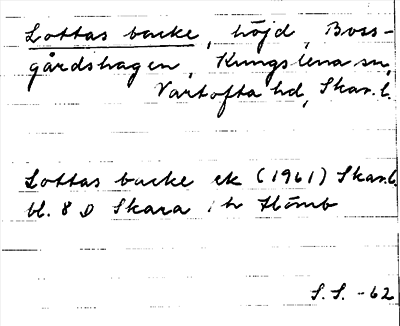 Lottas backe, höjd, Boss-
gårdshagen, Kungslena sn,
Vartofta hd, Skar.l.
Lottas backe ek (1961) Skar.l.
bl. 8 D Skara, h Hömb
S.S. -62